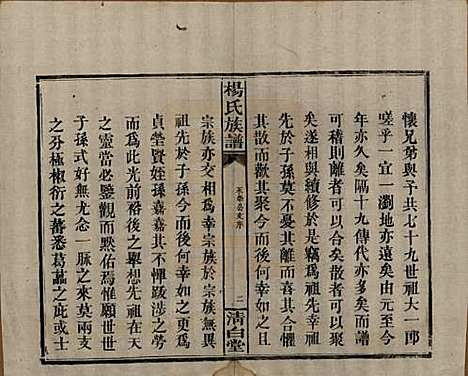 懷兄弟與予共七十九世祖大一郎
嗟乎一宜一瀏地亦遠矣由宋迄今
年亦久矣隔十九傳代亦多矣而猶
可稽則離者可以合矣散者可以聚
矣遂相與續修於是竊爲祖先幸祖
先於子孫莫不憂其離而喜其合憫
其散而歡其聚今而後何幸如之
楊氏族譜
二
清白堂
宗族亦交相爲幸宗族於宗族無異
祖先於子孫今而後何幸如之而永
貞瑩賢姪孫嘉嘉其不憚跋涉之勞
而爲此光前裕後之舉想先祖在天
之靈當亦鑒觀而黙佑焉惟願世世
子孫式好無尤念一脉之來莫兩支
之分極椒衍之蕃悉葛藟之庇或士